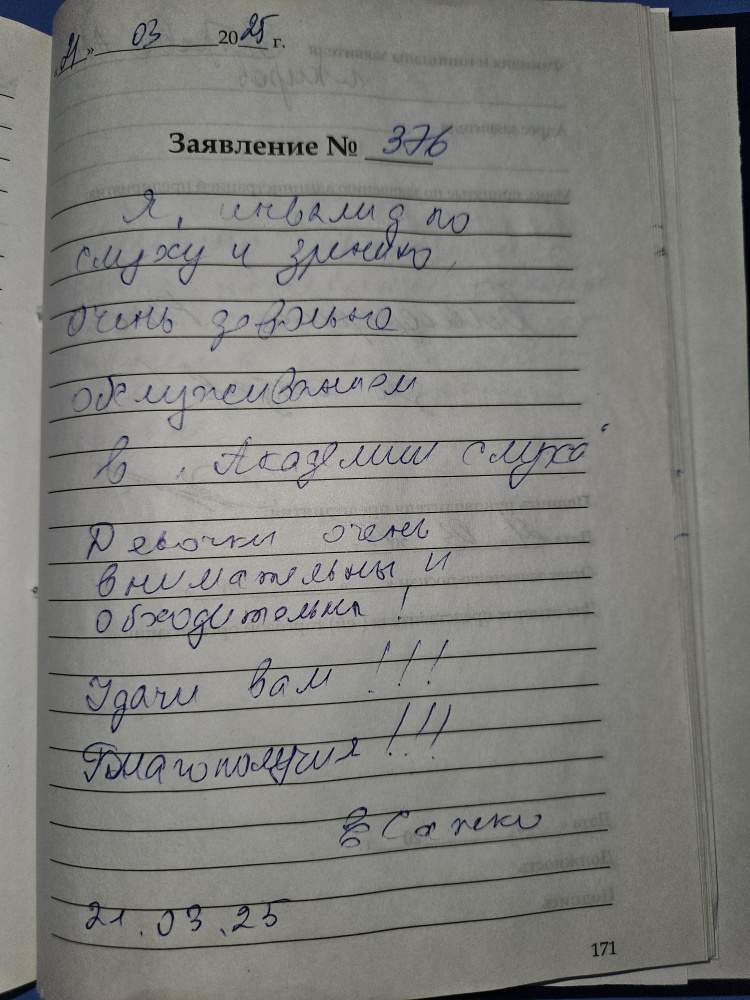 «21» 03 2025 г.
Заявление № 376
Я, инвалид по
слуху и зрению,
очень довольна
обслуживанием
в „Академии слуха“
Девочки очень
внимательны и
обходительны!
Удачи вам!!!
Благополучия!!!
21.03.25
171